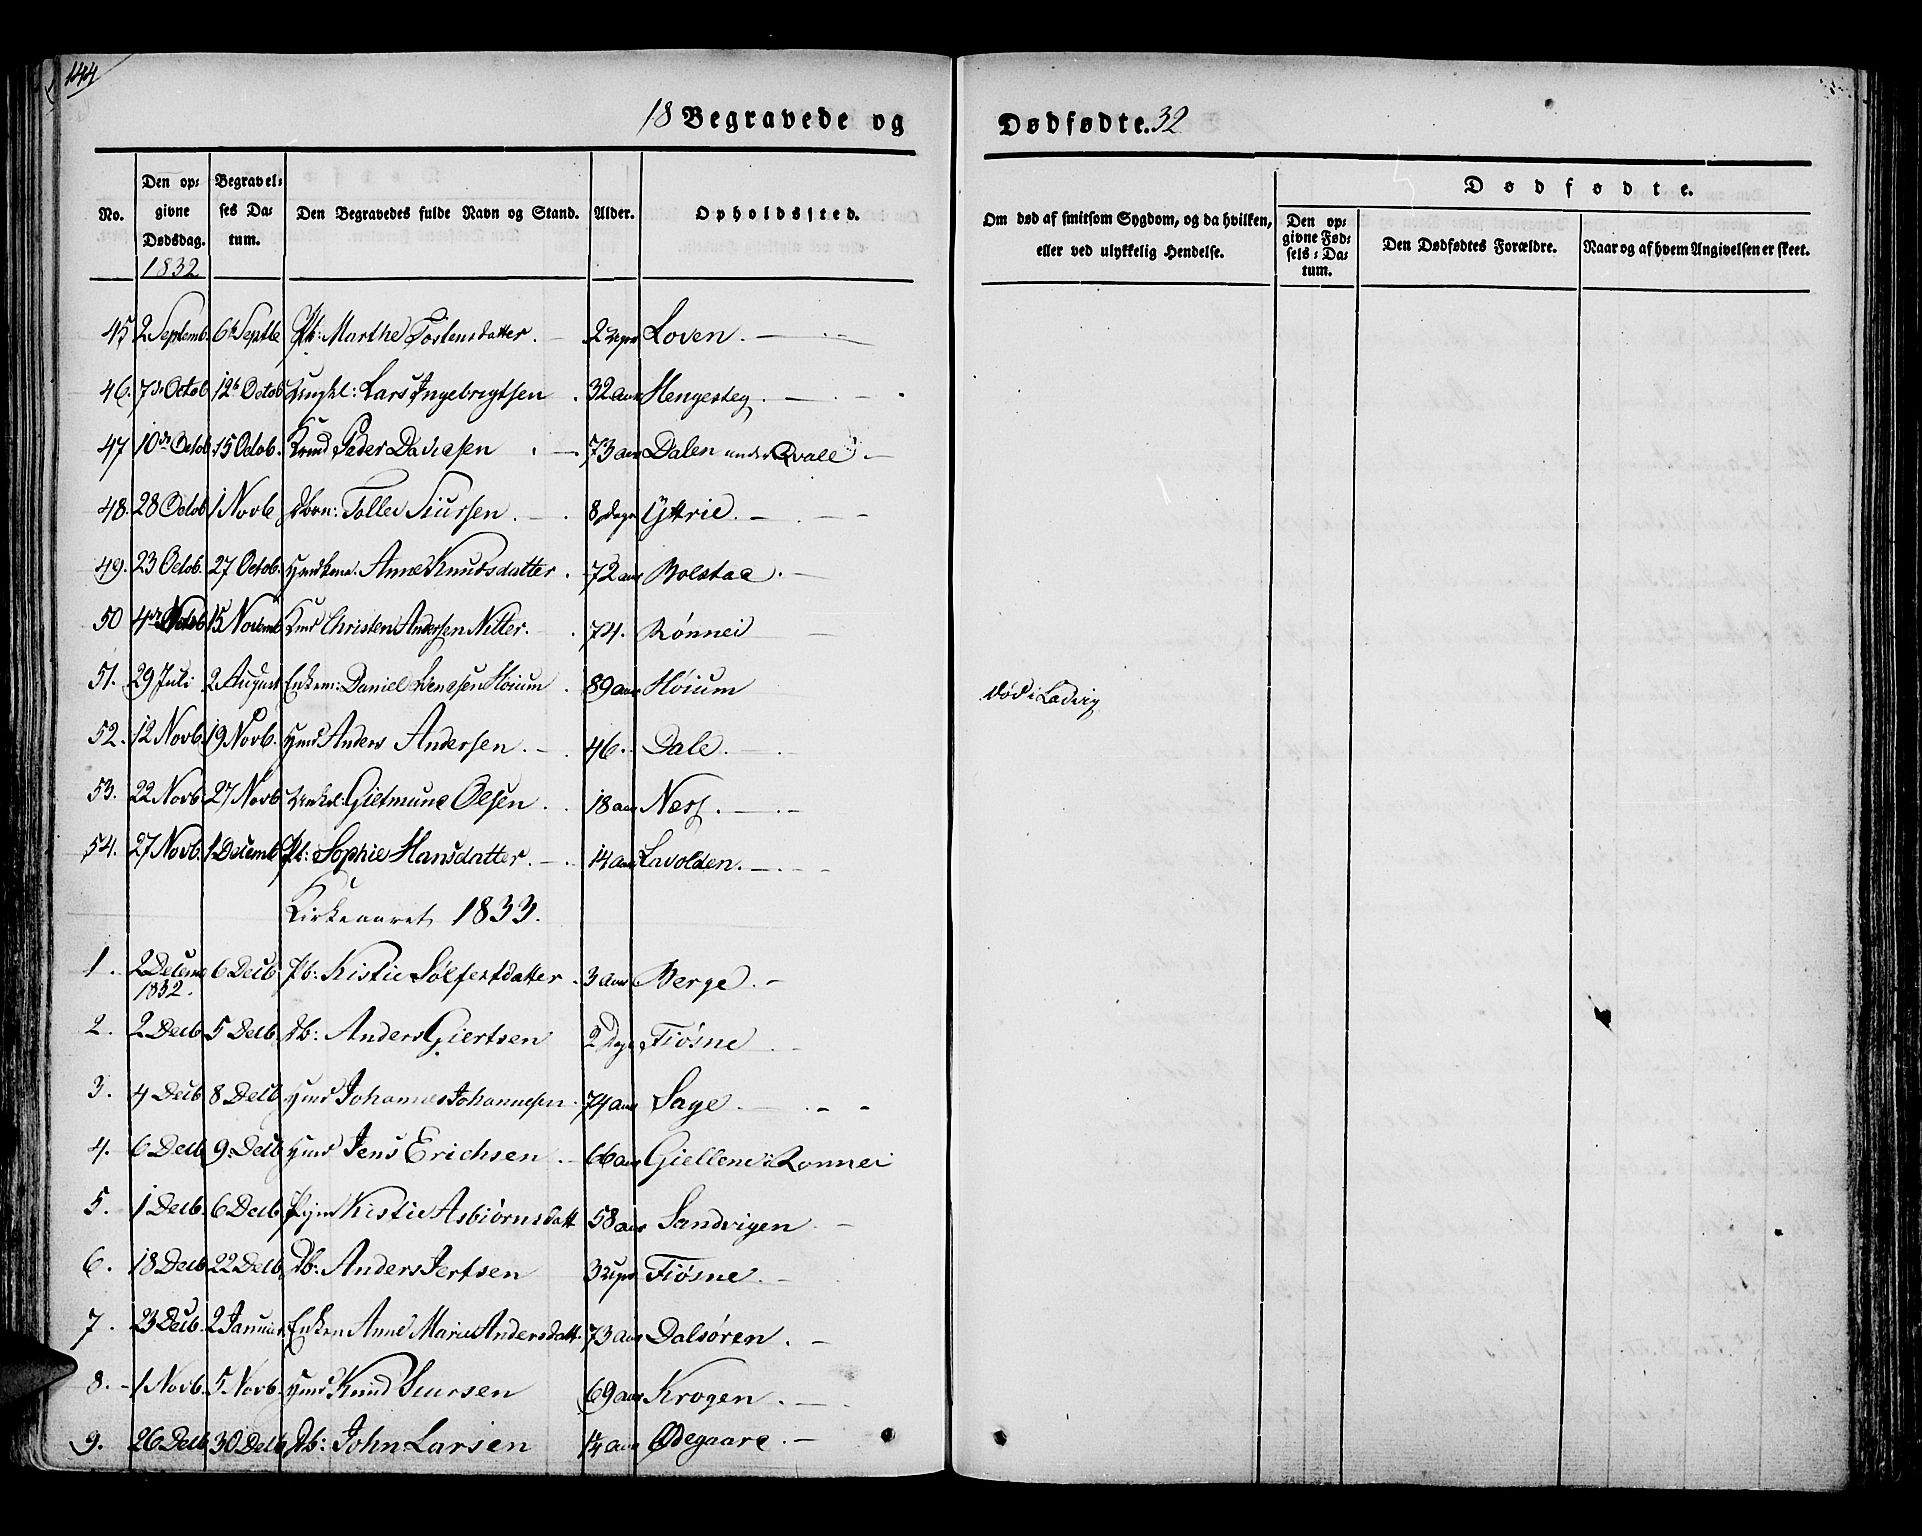 144
18 Begravede og Dødfødte. 32
No. Den opgivne Dødsdag. Begravelses Datum. Den Begravedes fulde Navn og Stand. Alder. Opholdssted. Om død af smitsom Sygdom, og da hvilken, eller ved ulykkelig Hendelse. Dødfødte. Den opgivne Fødsels-Datum. Den Dødfødtes Forældre. Naar og af hvem Angivelsen er skeet.
1832
45 2 Septemb. 6te Septbr Pb: Marthe Tostensdatter. 2 Loven.
46. 7de Octob 12te Octob Ungkl: Lars Ingebrigtsen 32 aar Hengesteg.
47 10de Octob 15 Octob. Kmd Peder Davidsen 73 aar Dalen under Qvale
48. 28 Octob 1 Novb Dbrn: Tollev Siursen. 8 Dage Yttrie.
49. 23 Octob. 27 Octob. Anne Knudsdatter. 72 aar Bolstad.
50 4de 15 Novemb Christen Andersen Nitter. 74. Rønnei
51. 29 Juli 2 August Enkem: Daniel Høium 89 aar Høium død i Ladvig
52. 12 Novb. 19 Novb. Hmd Anders Andersen. 46. Dale.
53. 22 Novb. 27 Novb Gietmund Olsen. 18 aar Næss.
54. 27 Novb. 1 Decemb Pb: Sophie Hansdatter. 14 aar Lavolden.
Kirkeaaret 1833.
1. 2 Decemb 1832. 6 Decb Pb: Kistie Sølfestdatter. 3 aar Berge.
2. 2 Decb 5 Decb. Db: Anders Giertsen 2 Dage Fiøsne
3. 4 Decb 8 Decb Hmd Johannes Johannesen. 74 aar Sage.
4. 6 Decb 9. Decb Hmd Jens Erichsen. 66 aar Giellene i Rønnei
5. 1 Decb. 6 Decb. Kistie Asbiørnsdatt 58 aar Sandvigen
6. 18 Decb 22 Decb. Db: Anders Jertsen 3 Fiøsne.
7. 23 Decb. 2 Januar Enken Anne Marie Andersdatt. 73 aar Dalsøren.
8. 1 Novb. 5 Novb. Hmd Knud Siursen 69 aar Krogen.
9. 26 Decb 30 Decb Db: John Larsen 14 aar Ødegaard.